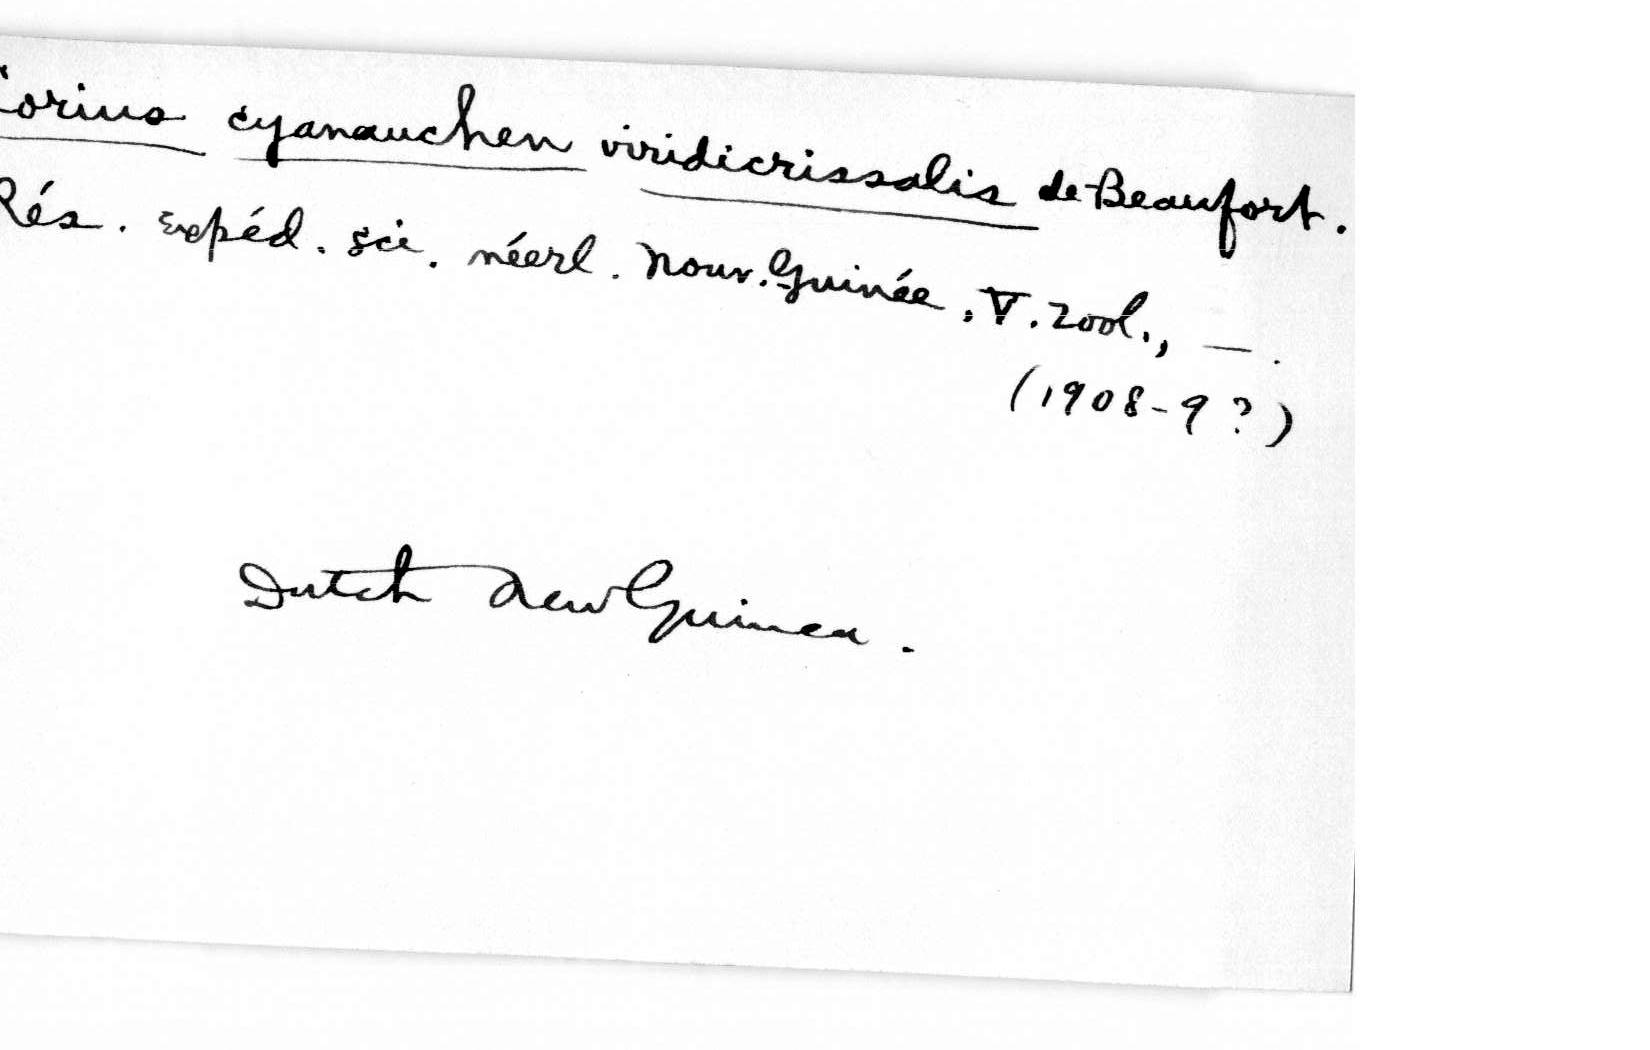 Lorius cyanauchen viridicrissalis de Beaufort.
Rés. expéd. sci. néerl. Nouv. Guinée, V. Zool., — .
(1908-9?)
Dutch New Guinea.